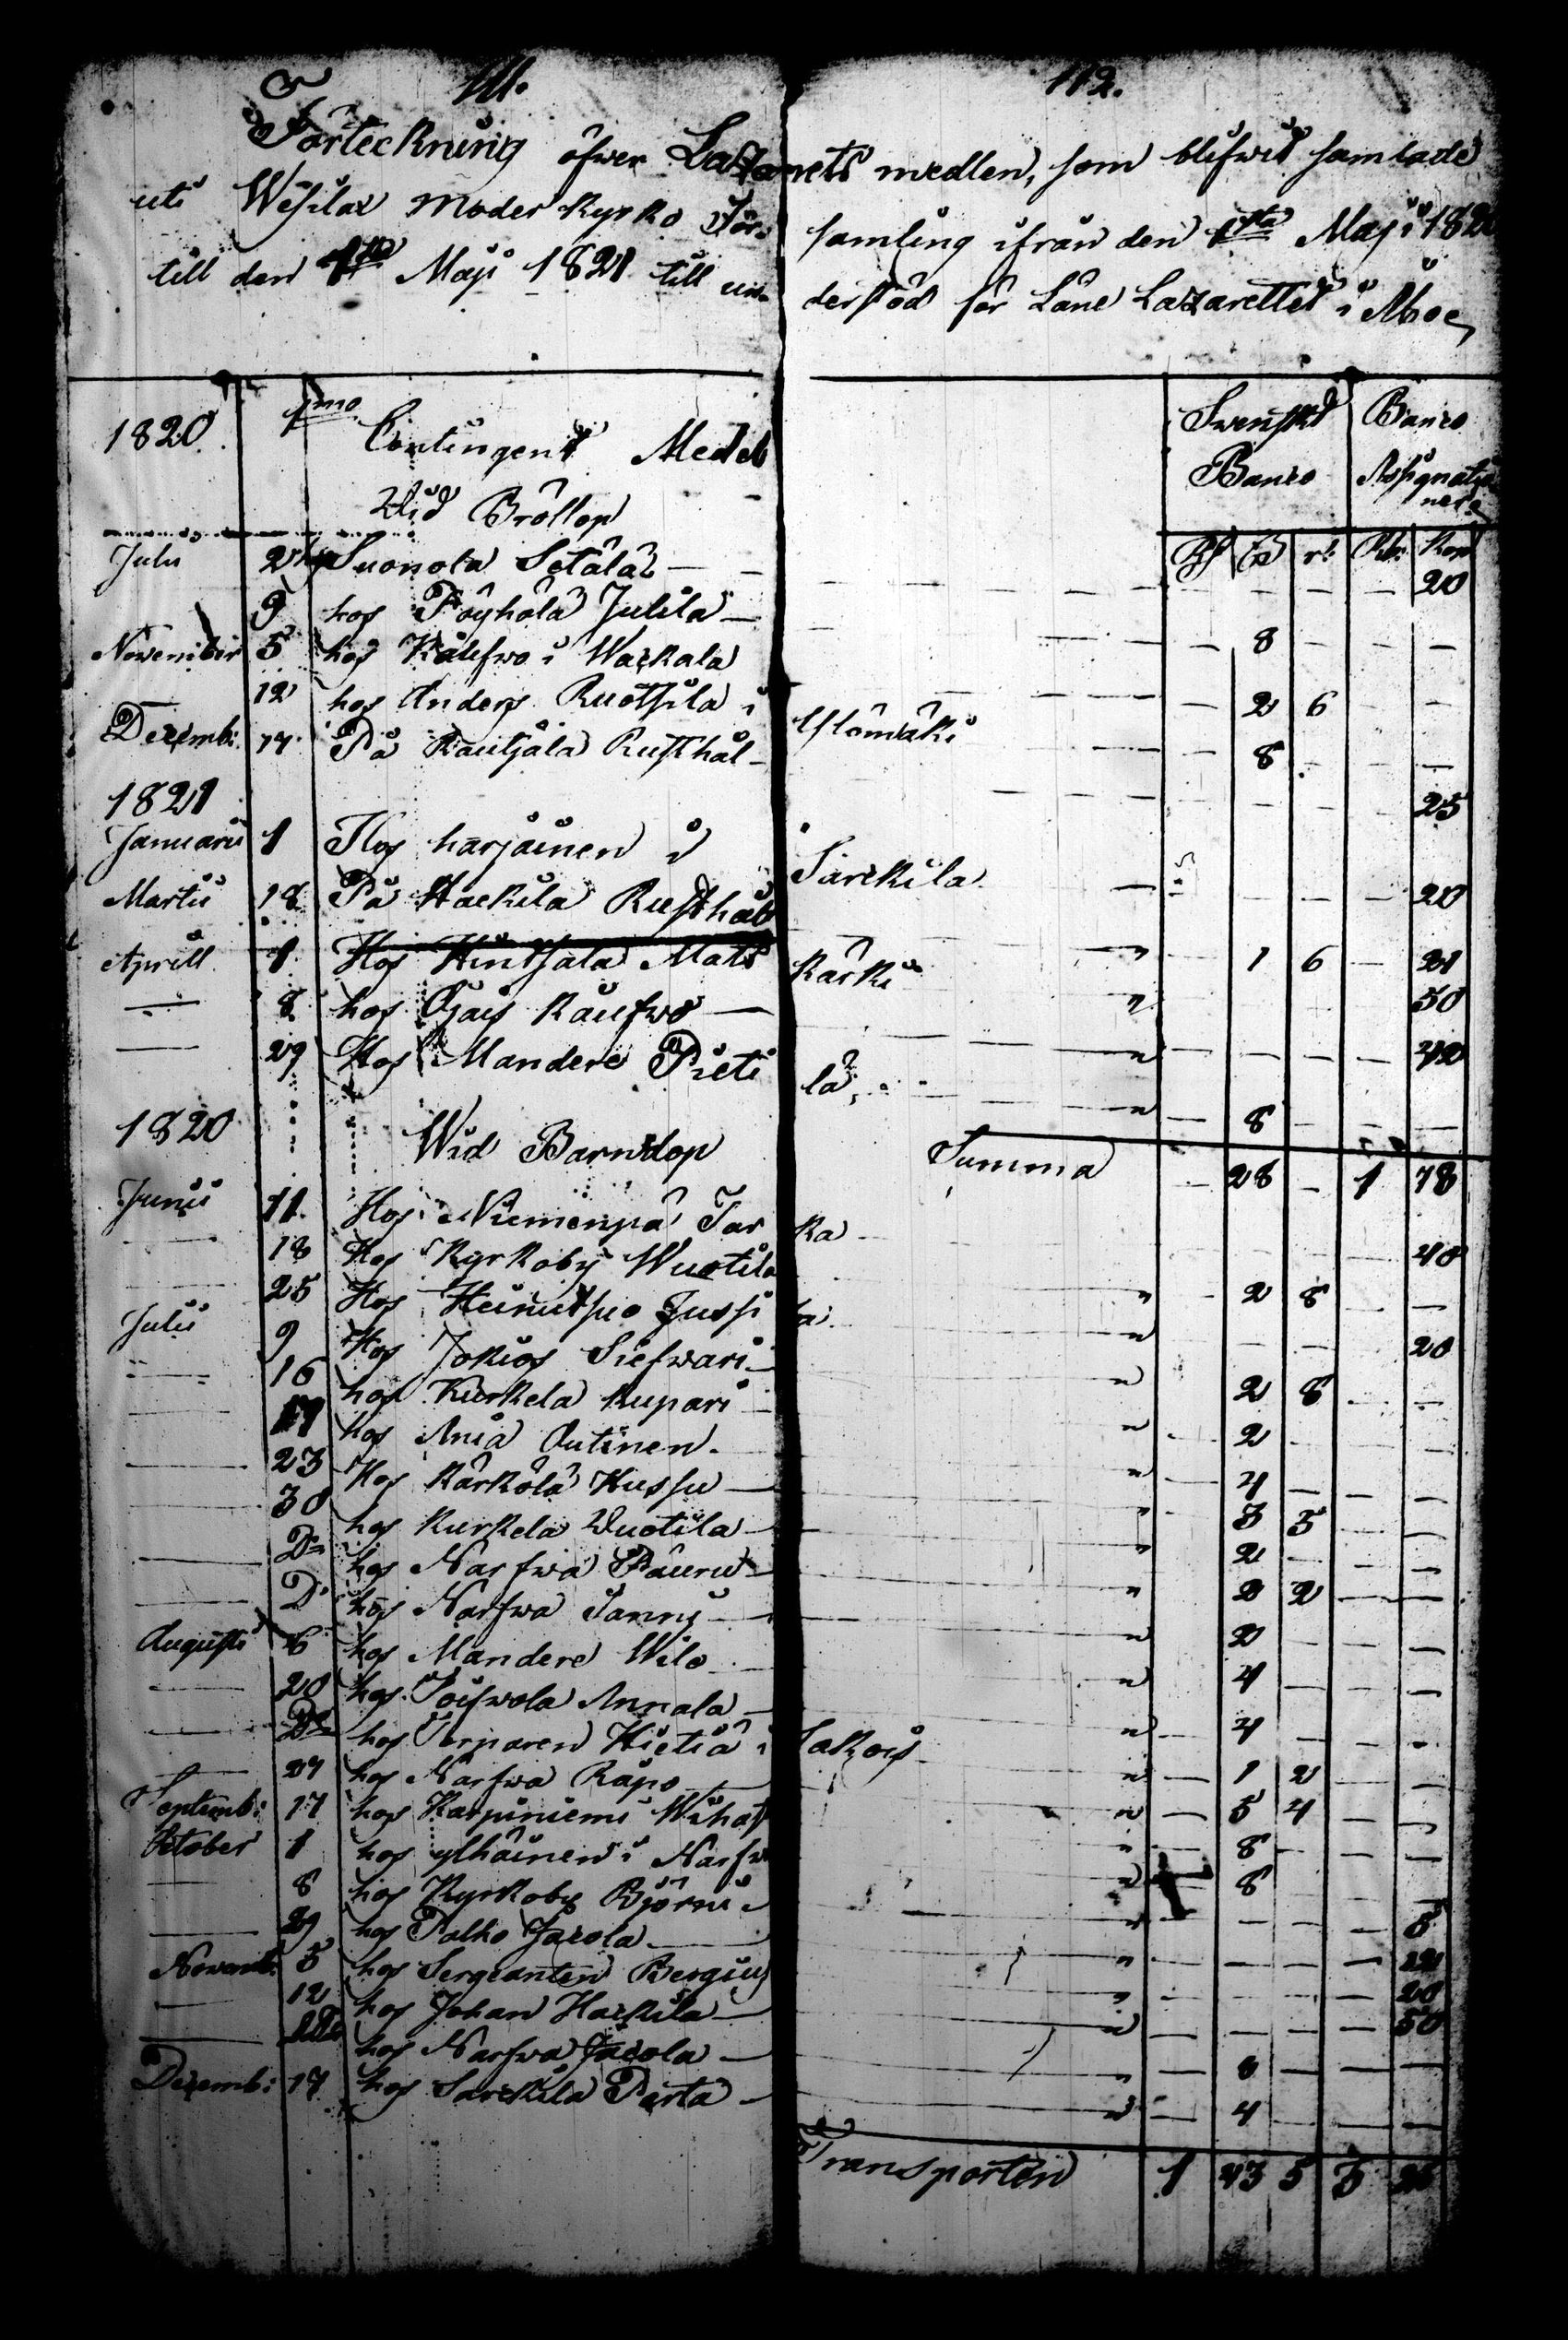 111. 112.
Förteckning öfwer Lazaretts medlen, som blifwit samlade
uti Wesilax Moder Kyrko För- samling ifrån den 1sta Maji 1820
till den 1sta Maji 1821 till un- derstöd för Läne Lazarettet i Åboe,
1820. 1mo Contingent Medel Swenskt Banco Banco Assignationer
Wid Bröllop Rd ß r: Rbr: Kop
Julii 2 hos Suonola Setälä — — 20
9 hos Pöyhölä Julila — 8 — — —
November 5 hos Källfwo i Wackala — 2 6 — —
12 hos Anders Ruotsila i Ylömäki — 8 — — —
Decemb: 17 På Kautjala Rusthål — — — — 25
1821
Januarii 1 Hos harjainen i Särckila — — — — 20
Martii 18 På Hackila Rusthåll " 1 6 — 21
Aprill 1 Hos Hintsala Matt Kärki " 50
— 8 hos Ojais Kaufwo — " — — — — 42
— 29 Hos Mandere Pietilä, " — 8 — — —
1820 Wid Barndop Summa — 28 — 1 78
Junii 11 Hos Niemenpä Jarka — 40
— 18 Hos Kyrkoby Wuotila " — 2 8 — —
25 Hos Heinitsuo Jussila " 20
Julii 9 Hos Jokios Siefwari — " 2 8 — —
— 16 hos Kurkela Kupari — " 2 —
— 17 hos Ania Outinen. " 4 — — —
— 23 Hos Kärkölä Hussu — " 3 5 — —
30 hos Kurkela Wuotila — " 2 — — —
— Do hos Narfwa Pauru — " 2 2 — —
— Do hos Narfwa Janni — " 2 — — —
Augusti 6 hos Mandere Wilo — " 4 — — —
— 20 hos Toifwola Annala — " — 4 — — —
— Do hos Torparen Hietiä i Lakois " — 1 2 — —
— 27 hos Narfwa Räpo " — 5 4 — —
Septemb: 17 hos Karpiniemi Wihas " — 8 — — —
October 1 hos ylhäinen i Narfwa " 8
— 8 hos Kyrkoby Björni — " — — — — 5
— 29 hos Palho Jacola — " — — — —
Novemb: 5 hos Sergeanten Bergius " — — — — 20
— 12 hos Johan Hackila — " — — — — 50
— dito hos Narfwa Jacola — " — 8 — — —
Decemb: 17 hos Särckila Perta — " — 4 — — —
Transporten 1 43 5 3